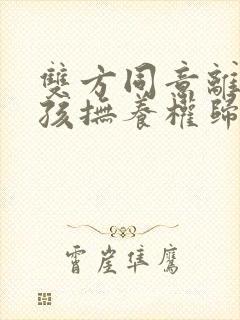 雙方同意離
孩撫養權歸
霄崖隼鷹